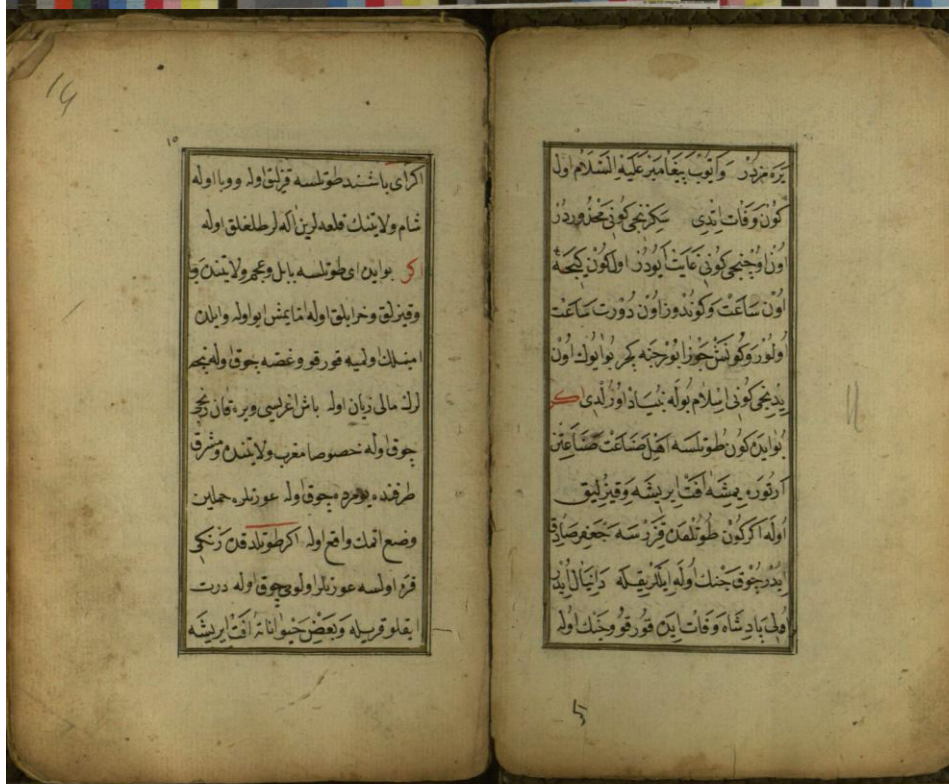 يره مزدر وايوب پيغامبر عليه السلام اول
كون وفات ايتدى سكزنجى كونى محذوردر
اون اوچنجى كونى غايت ايودر اولكون كيجه
اون ساعت وكوندوز اون دورت ساعت
اولور وكونش جوزا بورجنه كيرر بو ايوك اون
يدنجى كونى اسلام بوله بنياد اورلدى اكر
بو ايده كون طوتلسه اهل صناعت صناعتن
آرتوره يمشه آفت ايريشه وقيزليق
اوله اكر كون طوتلمدن قزرسه جعفر صادق
ايدر چوق جنك اوله ايلكريقيله دانيال ايدر
اولى پادشاه وفات ايده قورقو وجنك اوله
اكر اى باشنده طوتلسه قزلق اوله ووبا اوله
شام ولايتنك قلعه لرين اله لر طلغلق اوله
اكر بو ايده اى طوتلسه بابل وعجم ولايتنده
وقيزلق وخرابلق اوله اما يمش ايو اوله وايلده
امينلك اولميه قورقو وغصه چوق اوله نجه
لرك مالى زيان اوله باش اغريسى ويره قان رنجى
چوق اوله خصوصا مغرب ولايتنده ومشرق
طرفنده يومرده چوق اوله عورتلره حملين
وضع اتمك واقع اوله اكر طوتلدقده رنكى
قره اولسه عورتلر اولومى چوق اوله درت
ايقلو قريله وبعض حيواناته آفت ايريشه
14
10